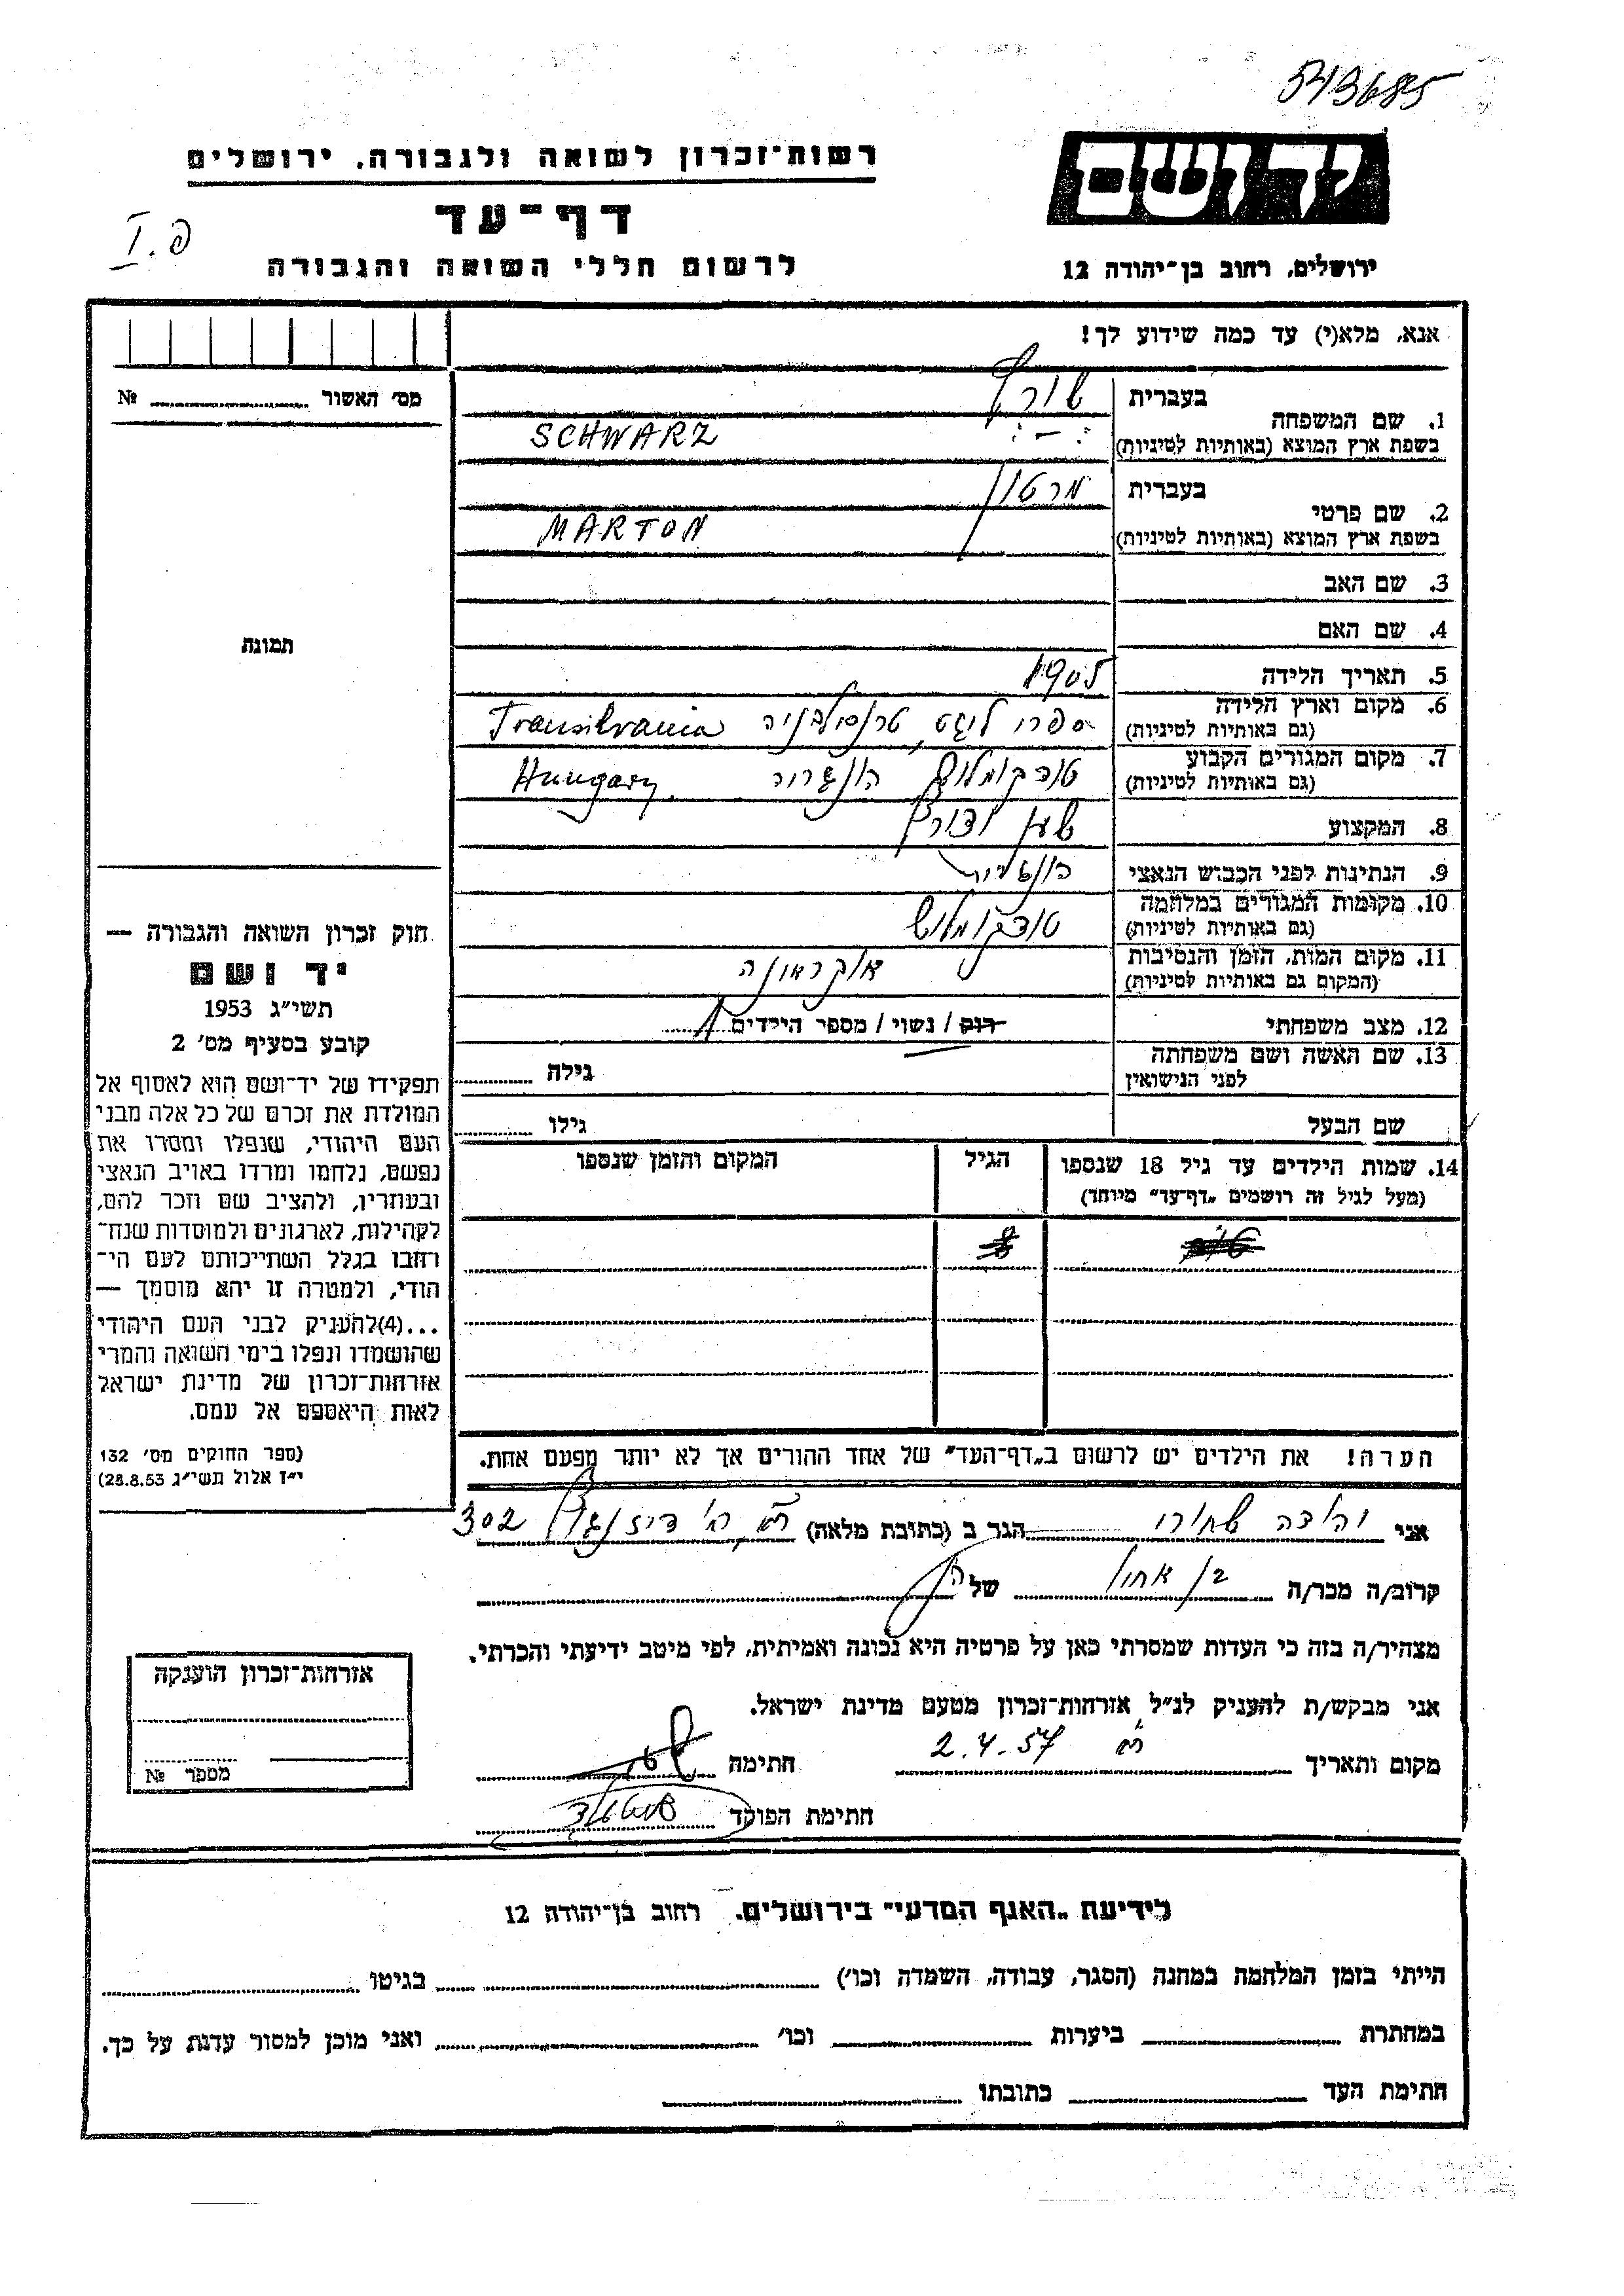 543685
רשות־זכרון לשואה ולגבורה, ירושלים
יד ושם
דף־עד
לרשום חללי השואה והגבורה
ירושלים, רחוב בן־יהודה 12
אנא, מלא(י) עד כמה שידוע לך!
מס׳ האשור № 
1. שם המשפחה
בעברית שורץ
בשפת ארץ המוצא (באותיות לטיניות) SCHWARZ
2. שם פרטי
בעברית מרטון
בשפת ארץ המוצא (באותיות לטיניות) MARTON
3. שם האב
4. שם האם
תמונה
5. תאריך הלידה 1905
6. מקום וארץ הלידה
(גם באותיות לטיניות) טרנסילבניה Transilvania
7. מקום המגורים הקבוע
(גם באותיות לטיניות) הונגריה Hungary
8. המקצוע שען וצורף
9. הנתינות לפני הכבוש הנאצי
10. מקומות המגורים במלחמה
(גם באותיות לטיניות)
11. מקום המות, הזמן והנסיבות
(המקום גם באותיות לטיניות) אוקראינה
12. מצב משפחתי רווק / נשוי / מספר הילדים 1
13. שם האשה ושם משפחתה
לפני הנישואין גילה
שם הבעל גילו
14. שמות הילדים עד גיל 18 שנספו הגיל המקום והזמן שנספו
(מעל לגיל זה רושמים „דף־עד״ מיוחד)
8
חוק זכרון השואה והגבורה —
יד ושם
תשי״ג 1953
קובע בסעיף מס׳ 2
תפקידו של יד־ושם הוא לאסוף אל
המולדת את זכרם של כל אלה מבני
העם היהודי, שנפלו ומסרו את
נפשם, נלחמו ומרדו באויב הנאצי
ובעוזריו, ולהציב שם וזכר להם,
לקהילות, לארגונים ולמוסדות שנח־
רבו בגלל השתייכותם לעם הי־
הודי, ולמטרה זו יהא מוסמך —
...(4)להעניק לבני העם היהודי
שהושמדו ונפלו בימי השואה והמרי
אזרחות־זכרון של מדינת ישראל
לאות היאספם אל עמם.
(ספר החוקים מס׳ 132
י״ז אלול תשי״ג 28.8.53)
הערה! את הילדים יש לרשום ב„דף־העד״ של אחד ההורים אך לא יותר מפעם אחת.
אני יהודה הגר ב (כתובת מלאה) דיזנגוף 302
קרוב/ה מכר/ה בן אחות של
מצהיר/ה בזה כי העדות שמסרתי כאן על פרטיה היא נכונה ואמיתית, לפי מיטב ידיעתי והכרתי.
אני מבקש/ת להעניק לנ״ל אזרחות־זכרון מטעם מדינת ישראל.
מקום ותאריך 2.4.57 חתימה
חתימת הפוקד
אזרחות־זכרון הוענקה
מספר №
לידיעת „האגף המדעי״ בירושלים, רחוב בן־יהודה 12
הייתי בזמן המלחמה במחנה (הסגר, עבודה, השמדה וכו׳) בגיטו
במחתרת ביערות וכו׳ ואני מוכן למסור עדות על כך.
חתימת העד כתובתו